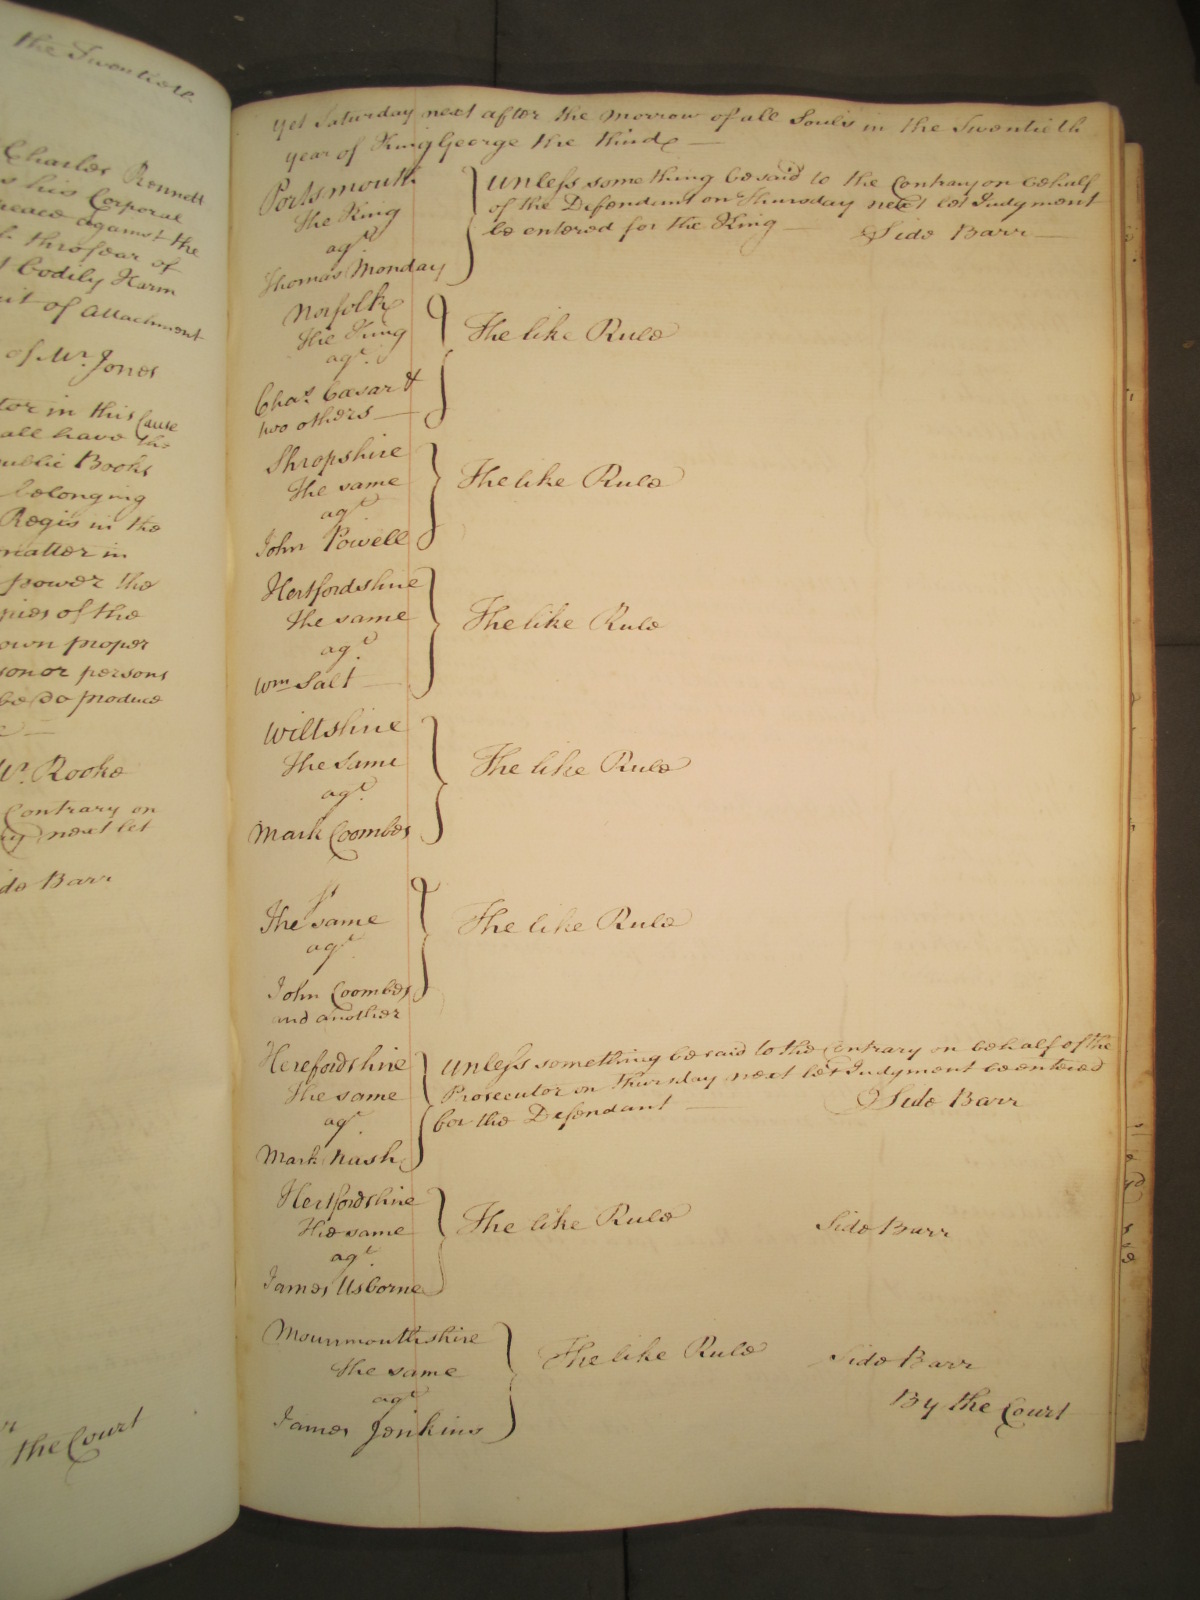 the Twentieth
Charles Rennett
his Corporal
peace against the
thro fear of
bodily Harm
of Attachment
of Mr. Jones
in this Cause
all have the
public Books
belonging
Regis in the
matter in
power the
copies of the
own proper
son or persons
be do produce
Mr. Rooke
Contrary on
next let
Side Barr
the Court
yet Saturday next after the morrow of all Souls in the Twentieth
year of King George the third
Portsmouth
The King
agt.
Thomas Monday
Unless something be said to the Contrary on behalf
of the Defendant on Thursday next let Judgment
be entered for the King Side Barr
Norfolk
The King
agt.
Chas. Cæsar &
two others
The like Rule
Shropshire
The same
agt
John Powell
The like Rule
Hertfordshire
The same
agt.
Wm Salt
The like Rule
Wiltshire
The same
agt.
Mark Coombes
The like Rule
The same
agt
John Coombes
and another
The like Rule
Herefordshire
The same
agt
Mark Nash
Unless something be said to the Contrary on behalf of the
Prosecutor on Thursday next let Judgment be entered
for the Defendant Side Barr
Hertfordshire
The same
agt.
James Usborne
The like Rule Side Barr
Mounmouthshire
The same
agt
James Jenkins
The like Rule Side Barr
By the Court